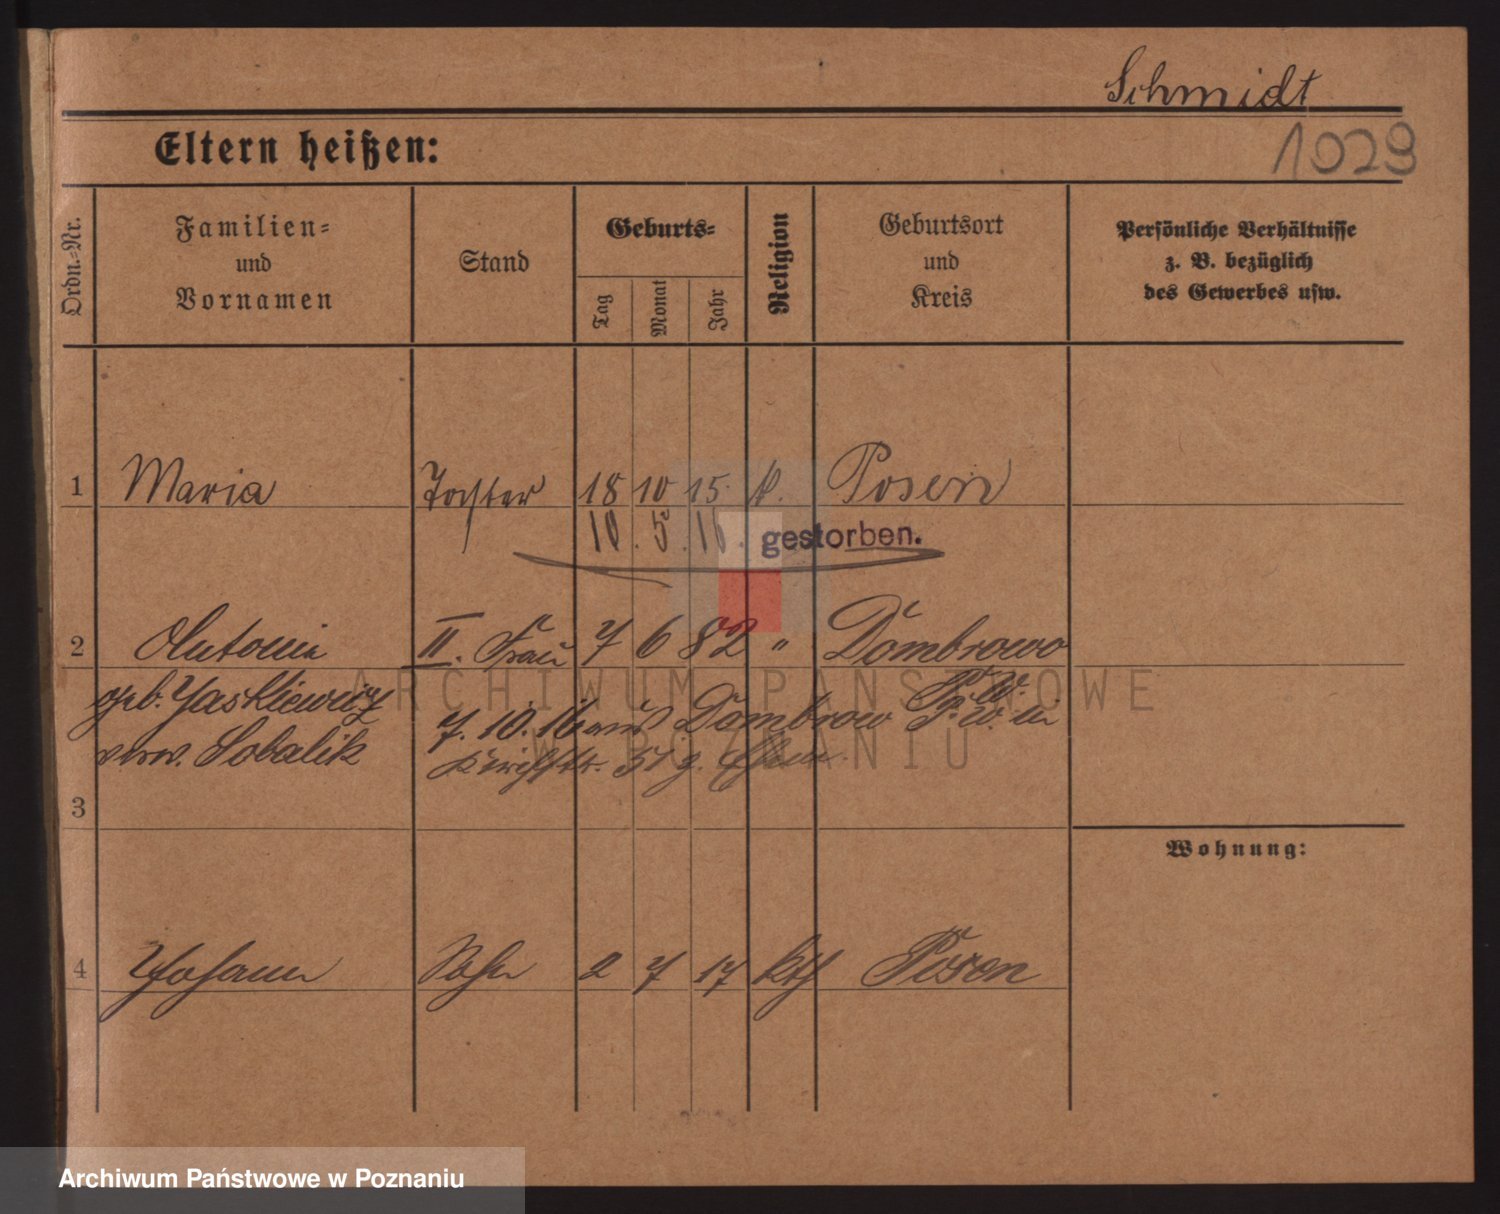 Schmidt
1029
Eltern heißen:
Ordn.-Nr.
Familien-
und
Vornamen
Stand
Geburts-
Tag
Monat
Jahr
Religion
Geburtsort
und
Kreis
Persönliche Verhältnisse
z. B. bezüglich
des Gewerbes usw.
1 Maria Tochter 18 10 15. k. Posen
10. 5. 16. gestorben.
2 Antonie II. Frau 7 6 82 " Dombrowo
geb. Jaskiewicz
7. 10. 16 aus Dombrow P. W. in
verw. Sobalik
51 z.
3
Wohnung:
4 Johann Sohn 2 7 17 kth Posen
ARCHIWUM PAŃSTWOWE
W POZNANIU
Archiwum Państwowe w Poznaniu